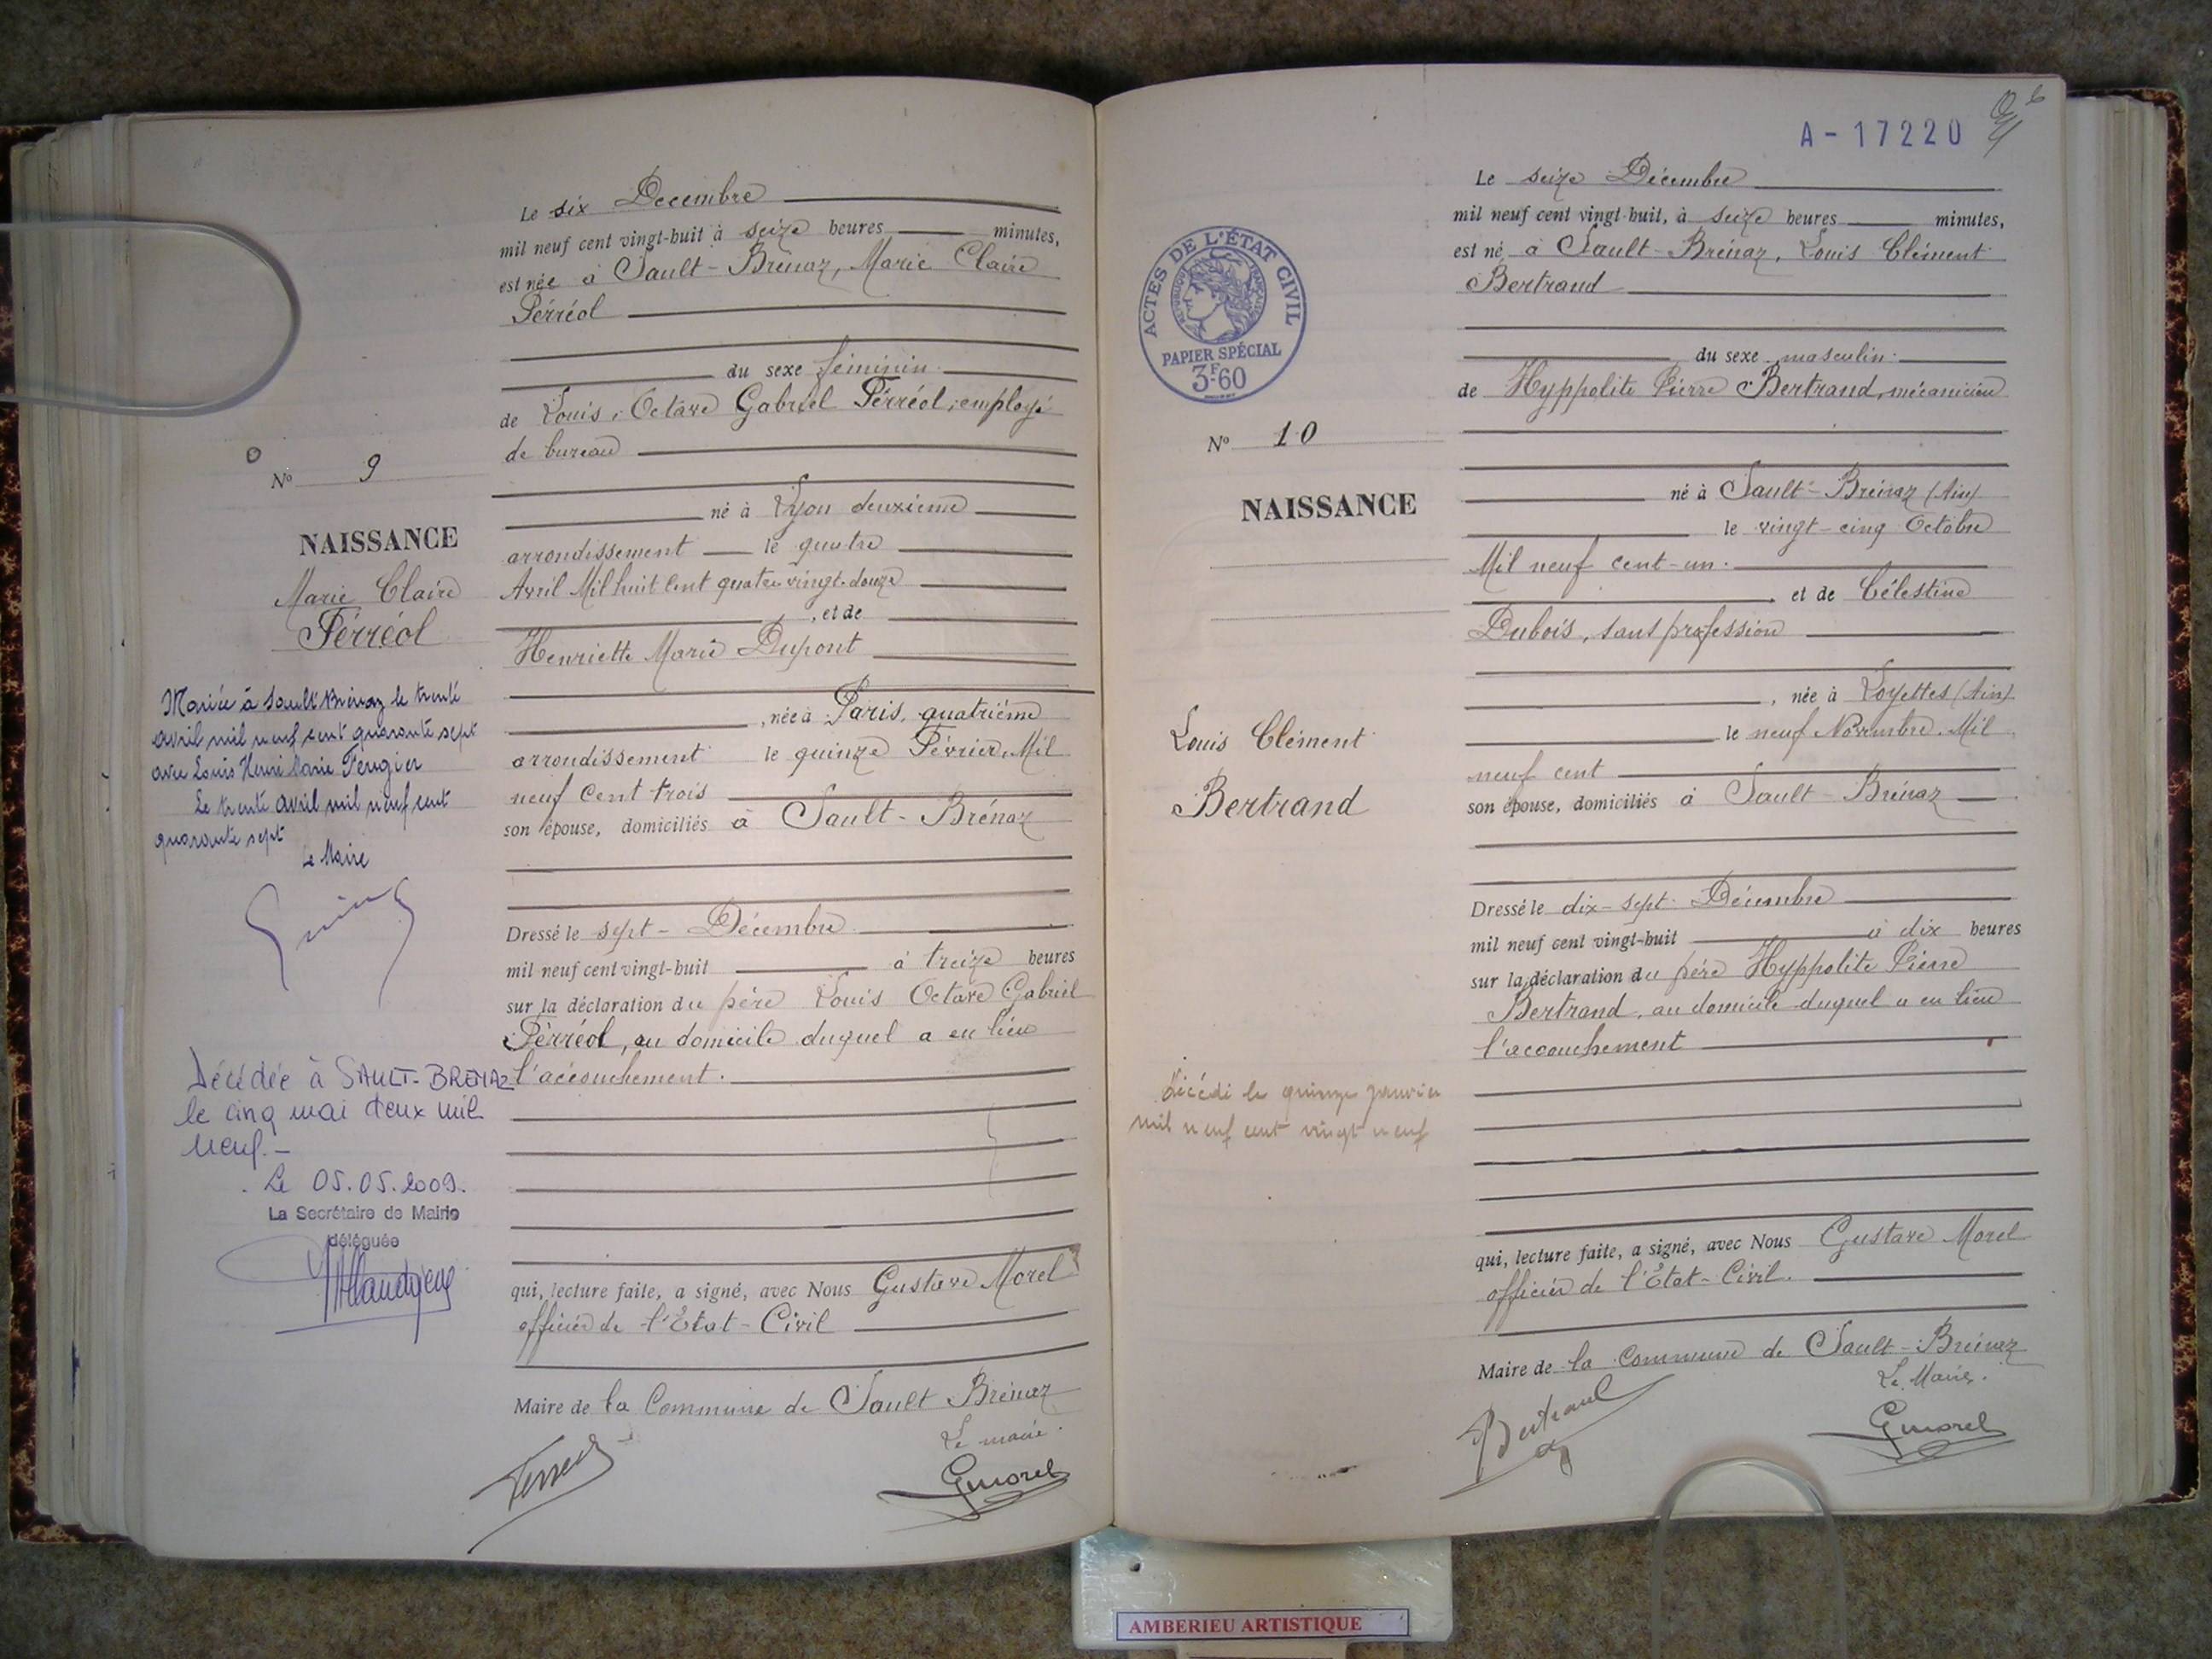 Le six Decembre
mil neuf cent vingt-huit à seize heures minutes,
est née à Sault-Brénaz, Marie Claire
Férréol
du sexe féminin.
de Louis, Octave Gabriel Férréol, employé
de bureau
né à Lyon deuxième
arrondissement le quatre
Avril Mil huit Cent quatre vingt-douze
, et de
Henriette Marie Dupont
, née à Paris, quatrième
arrondissement le quinze Février, Mil
neuf Cent trois
son épouse, domiciliés à Sault-Brénaz
Dressé le sept-Décembre
mil neuf cent vingt-huit à treize heures
sur la déclaration du père Louis Octave Gabriel
Férréol, au domicile duquel a eu lieu
l'accouchement.
qui, lecture faite, a signé, avec Nous Gustave Morel
officier de l'Etat-Civil
Maire de la Commune de Sault Brénaz
Le maire.
GMorel
No 9
NAISSANCE
Marie Claire
Férréol
Mariée à Sault Brénaz le trente
avril mil neuf cent quarante sept
avec Louis Henri Marie Feugier
Le trente avril mil neuf cent
quarante sept
Le Maire
Décédée à SAULT-BRENAZ
le cinq mai deux mil
neuf.-
Le 05.05.2009.
La Secrétaire de Mairie
déléguée
A-17220
Le seize Décembre
mil neuf cent vingt-huit, à seize heures minutes,
est né à Sault-Brénaz, Louis Clément
Bertrand
du sexe masculin.
de Hyppolite Pierre Bertrand, mécanicien
né à Sault-Brénaz (Ain)
le vingt-cinq Octobre
Mil neuf cent-un.
et de Célestine
Dubois, sans profession
, née à Loyettes (Ain)
le neuf Novembre. Mil
neuf cent
son épouse, domiciliés à Sault Brénaz
Dressé le dix-sept Décembre
mil neuf cent vingt-huit à dix heures
sur la déclaration du père Hyppolite Pierre
Bertrand, au domicile duquel a eu lieu
l'accouchement
qui, lecture faite, a signé, avec Nous Gustave Morel
officier de l'Etat-Civil.
Maire de la Commune de Sault-Brénaz
Le Maire.
Bertrand
GMorel
ACTES DE L'ÉTAT CIVIL
RÉPUBLIQUE FRANÇAISE
PAPIER SPÉCIAL
3F60
No 10
NAISSANCE
Louis Clément
Bertrand
Décédé le quinze janvier
mil neuf cent vingt neuf
AMBERIEU ARTISTIQUE